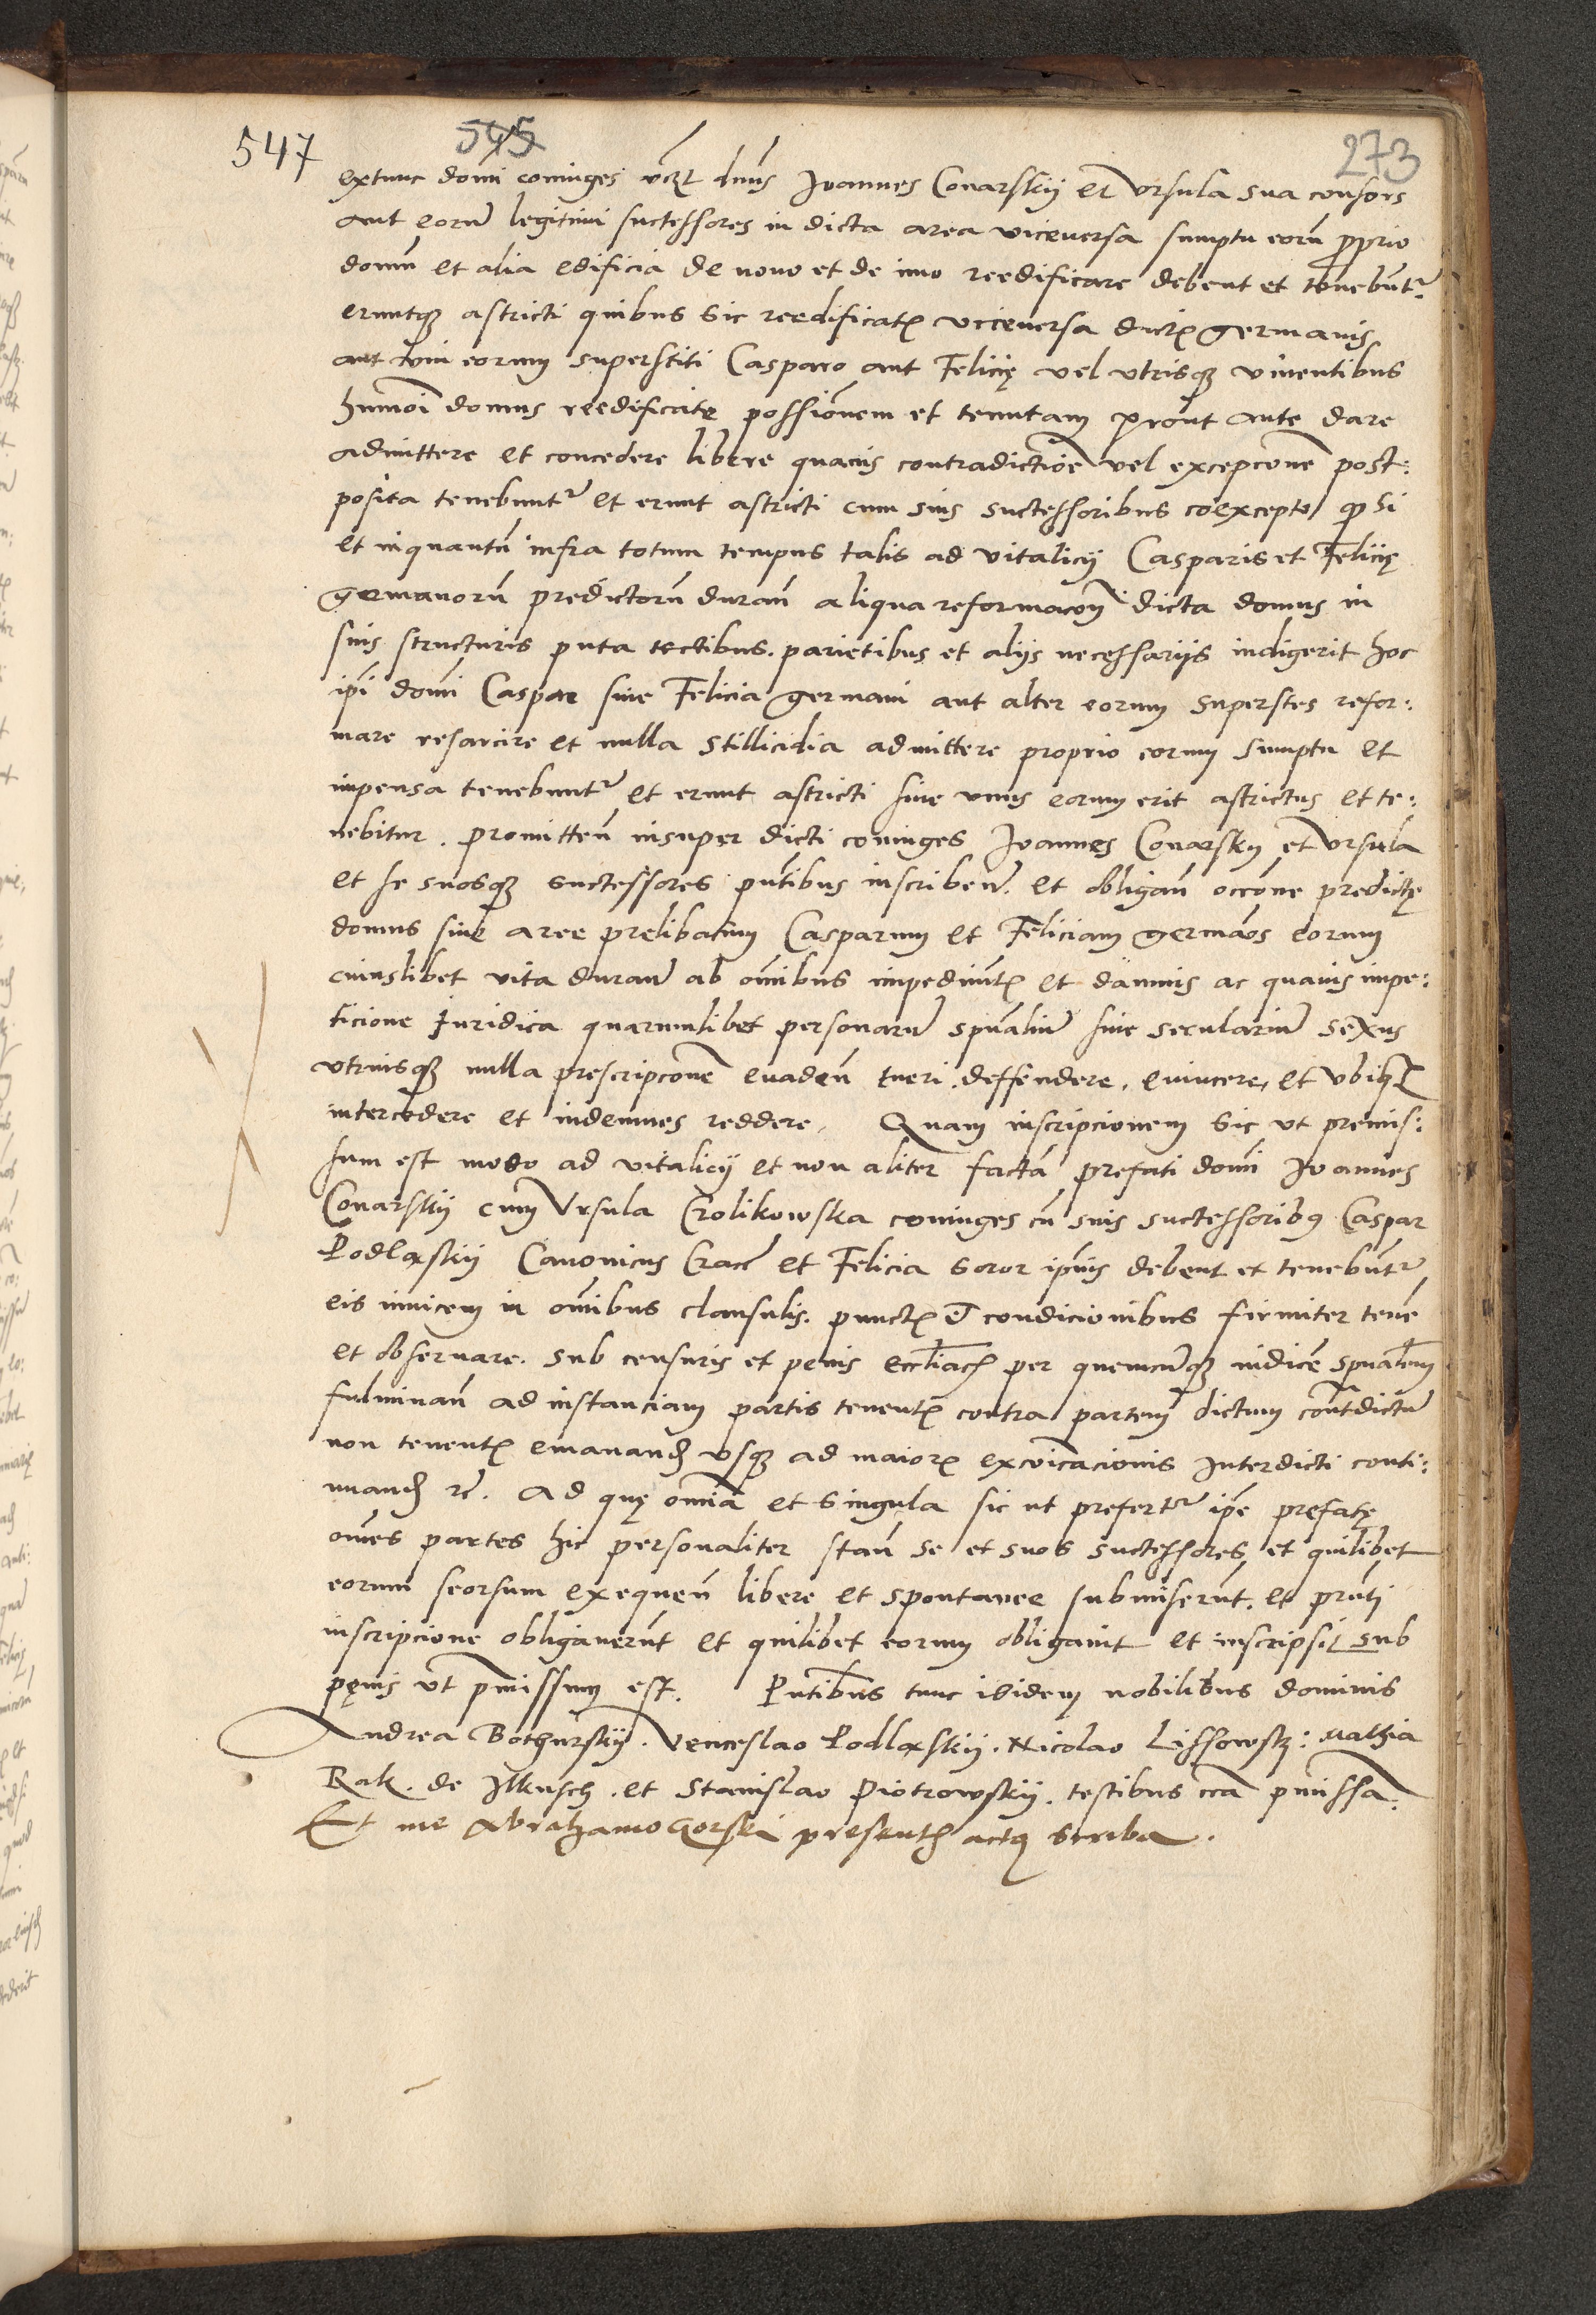 547
545
273
extunc domi coniuges vcz dnus Joannes Conarskij et Vrsula sua consors
aut eorum legitimi successores in dicta area viceuersa sumptu eorum proprio
domum et alia edificia de nouo et de imo reedificare debent et tenebuntur
eruntque astricti quibus sic reedificatis viceuersa dictis germanis
aut vni eorum superstiti Casparo aut Felicię vel vtrisque viuentibus
humoi domus reedificate possionem et tenutam prout ante dare
admittere et concedere libere quauis contradictione vel excepcione post:
posita tenebuntur et erunt astricti cum suis successoribus eo excepto quod si
et inquantum infra totum tempus talis ad vitalicij Casparis et Felicię
germanorum predictorum duran aliqua reformaconi dicta domus in
suis structuris puta tectibus. parietibus et alijs necessarijs indigerit hoc
ipi domi Caspar siue Felicia germani aut alter eorum superstes refor:
mare resarcire et nulla stillicidia admittere proprio eorum sumptu et
impensa tenebuntur et erunt astricti siue vnus eorum erit astrictus et te:
nebitur. promitten insuper dicti coniuges Joannes Conarsky et Vrsula
et se suosque successores pntibus inscriben. et obligan occone predictę
domus siue aree prelibatum Casparum et Feliciam germanos eorum
cuiuslibet vita duran ab omibus impedimtis et damnis ac quauis impe:
ticione Juridica quarumlibet personarum spualium siue secularium sexus
vtriusque nulla prescripcone euaden tueri. deffendere. euincere, et vbiqz
intercedere et indemnes reddere. Quam inscripcionem sic vt premis:
sum est modo ad vitalicij et non aliter factam prefati domi Joannes
Conarskij cum Vrsula Crolikowska coniuges cum suis successoribus Caspar
Podlaskij Canonicus Crac et Felicia soror ipsius debent et tenebuntur
eis inuicem in omibus clausulis. punctis et condicionibus firmiter tene
et obseruare. sub censuris et penis eccliacis per quemcunque iudicem spualem
fulminan ad instanciam partis tenentis contra partem dictum contradictum
non tenentis emanand vsque ad maioris excoicacionis Interdicti conti:
nuand rc. Ad quę omia et singula sic ut prefertur ipe prefatę
omes partes hic personaliter stan se et suos successores et quilibet
eorum seorsum exequen libere et spontanee submiserunt. et prnti
inscripcione obligauerunt et quilibet eorum obligauit et inscripsit sub
pęnis vt pmissum est. Pntibus tunc ibidem nobilibus dominis
Andrea Bothurskij. Venceslao Podlaskij. Nicolao Lissowsk: Mathia
Rak. de Ilkusch. et Stanislao Piotrowskij. testibus cca pmissa.
Et me Abrahamo Gorski presentis actus scriba.